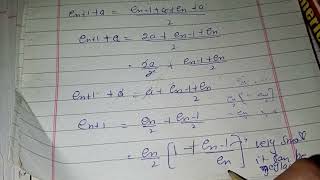 e_{n+1} + a = \frac{e_{n-1} + a + e_n + a}{2}
e_{n+1} + a = \frac{2a + e_{n-1} + e_n}{2}
= \frac{2a}{2} + \frac{e_{n-1} + e_n}{2}
e_{n+1} + a = a + \frac{e_{n-1} + e_n}{2}
e_{n+1} = \frac{e_n}{2} + \frac{e_{n-1}}{2}
= \frac{e_n}{2} \left[ 1 + \frac{e_{n-1}}{e_n} \right] very small
it can be